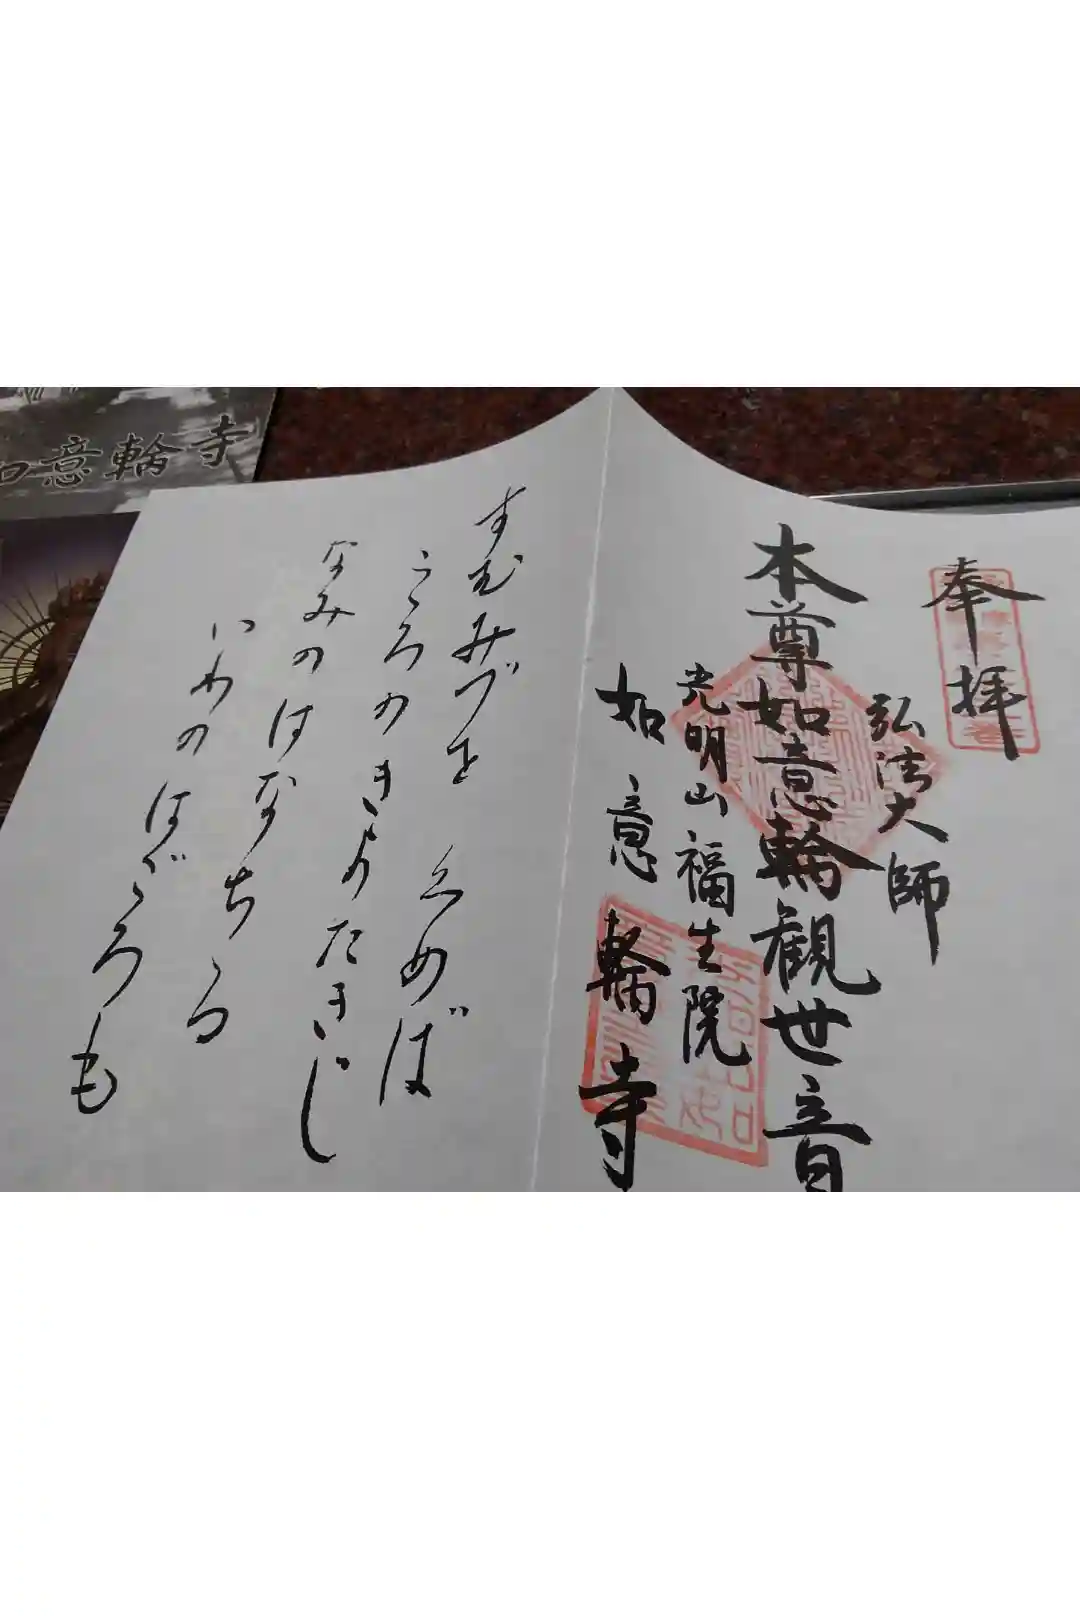 奉拝
弘法大師
本尊如意輪観世音
光明山福生院
如意輪寺
すむみづを くめば
こゝろのきよりたきじ
なみのはなちる
いわのはごろも
如意輪寺